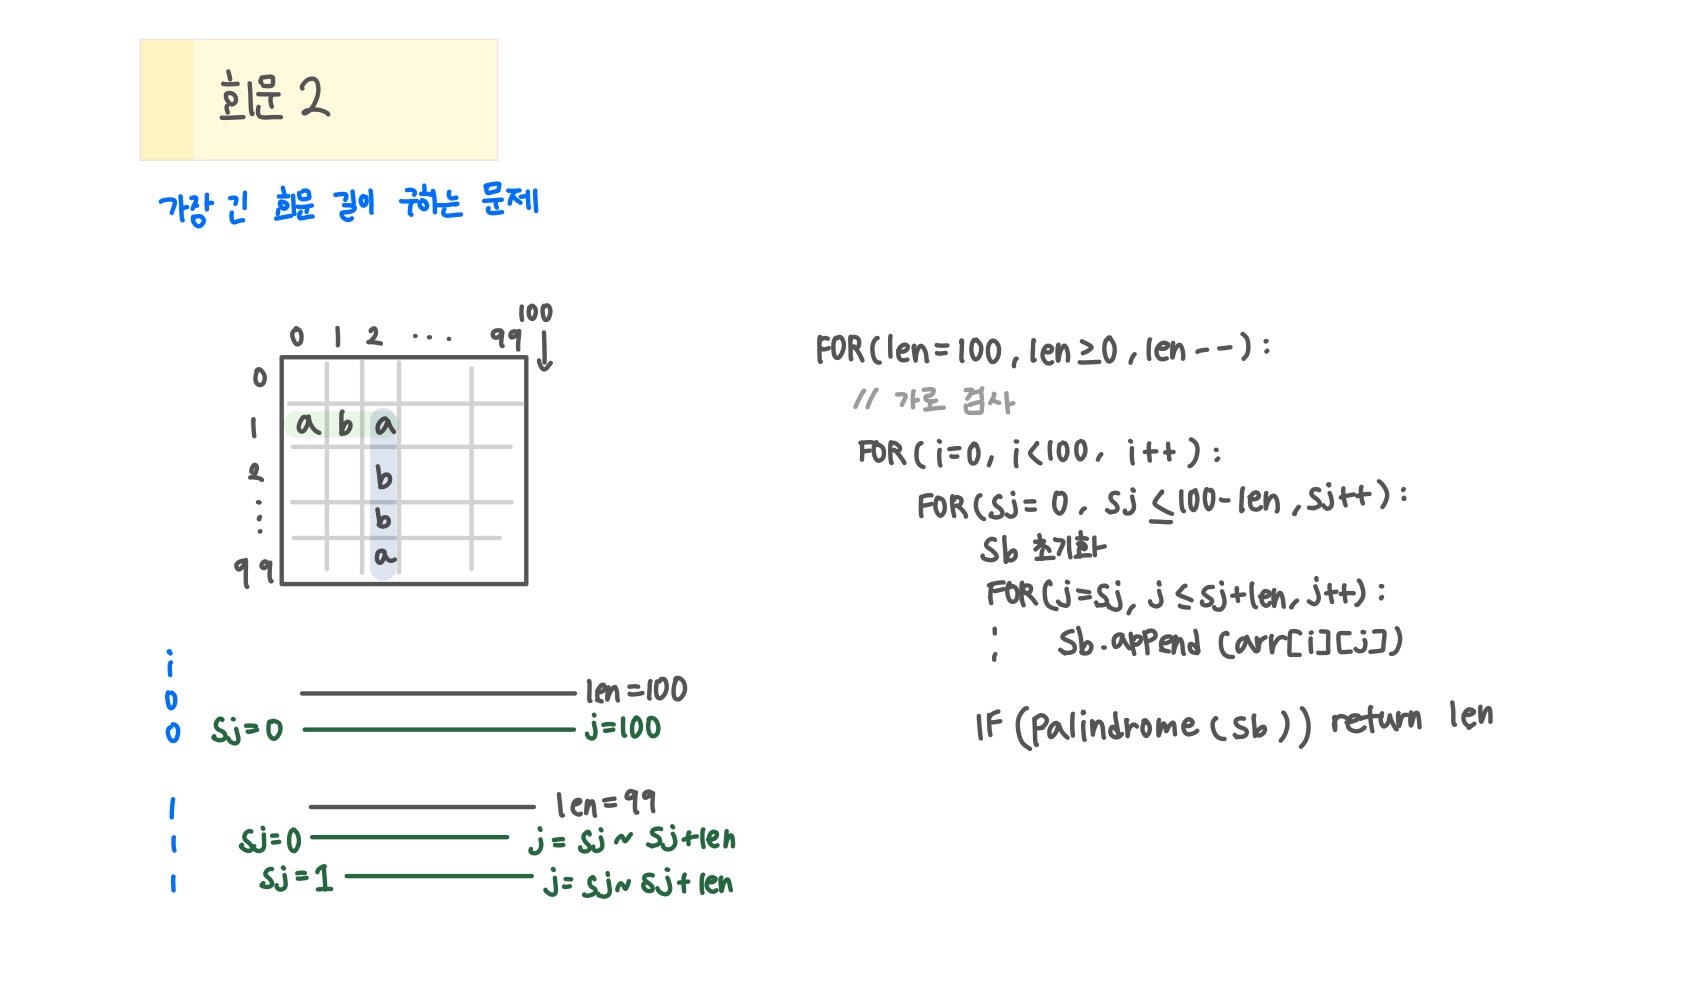 회문 2
가장 긴 회문 길이 구하는 문제
100
0 1 2 ... 99
0
1 a b a
2 b
⋮ b
99 a
i
0 len=100
0 sj=0 j=100
1 len=99
1 sj=0 j = sj ~ sj+len
1 sj=1 j= sj~ sj+len
FOR(len=100, len≥0, len--):
// 가로 검사
FOR(i=0, i<100, i++):
FOR(sj=0, sj≤100-len, sj++):
sb 초기화
FOR(j=sj, j≤sj+len, j++):
sb.append(arr[i][j])
IF(Palindrome(sb)) return len